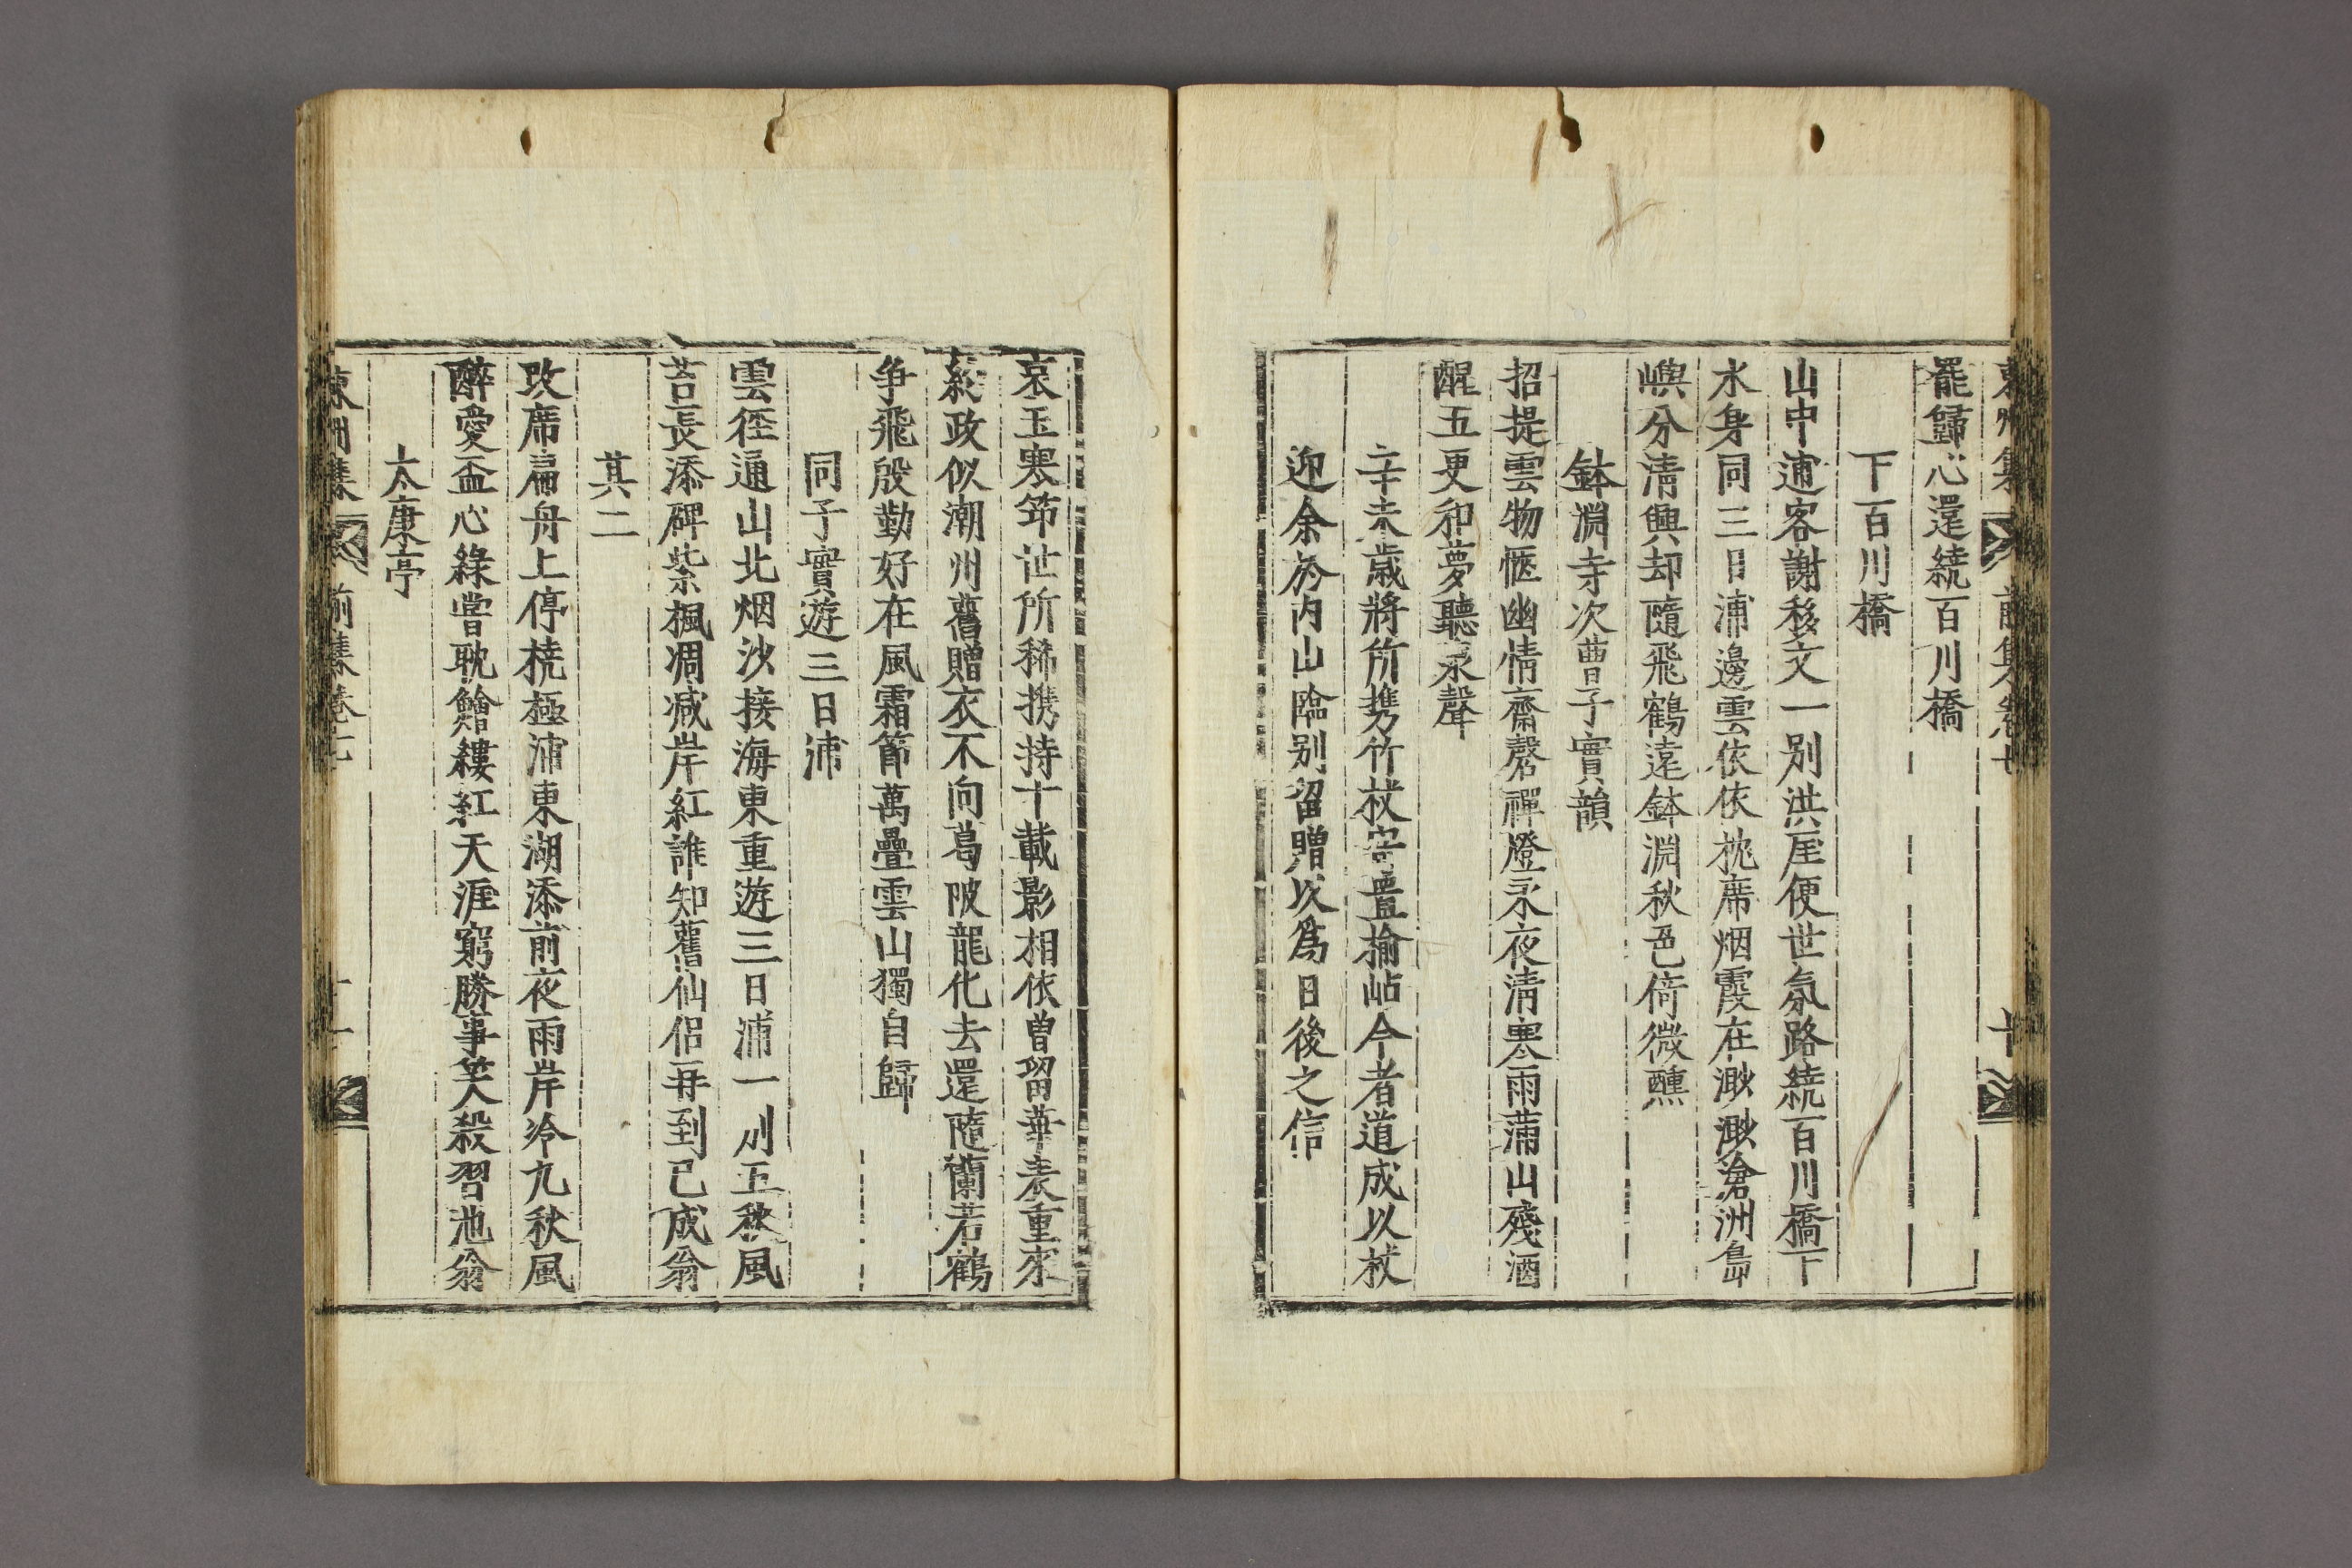 東州集 前集卷七 十
罷歸心還繞百川橋
下百川橋
山中逋客謝移文一別洪厓便世氛路繞百川橋下
水身同三日浦邊雲依依枕席烟霞在渺渺滄洲島
嶼分淸興却隨飛鶴遠鉢淵秋色倚微醺
鉢淵寺次曹子實韻
招提雲物愜幽情齋磬禪燈永夜淸寒雨滿山殘酒
醒五更和夢聽泉聲
辛未歲將所携竹杖寄置楡岾今者道成以杖
迎余於內山臨別留贈以爲日後之信
哀玉寒筇世所稀携持十載影相依曾留華表重來
□政似潮州舊贈衣不向葛陂龍化去還隨蘭若鶴
爭飛殷勤好在風霜節萬疊雲山獨自歸
同子實遊三日浦
雲徑通山北烟沙接海東重遊三日浦一別五秋風
苔長添碑紫楓凋减岸紅誰知舊仙侶再到已成翁
其二
改席扁舟上停橈極浦東湖添前夜雨岸冷九秋風
醉愛盃心綠嘗耽鱠縷紅天涯窮勝事笑殺習池翁
太康亭
東州集 前集卷七 十一